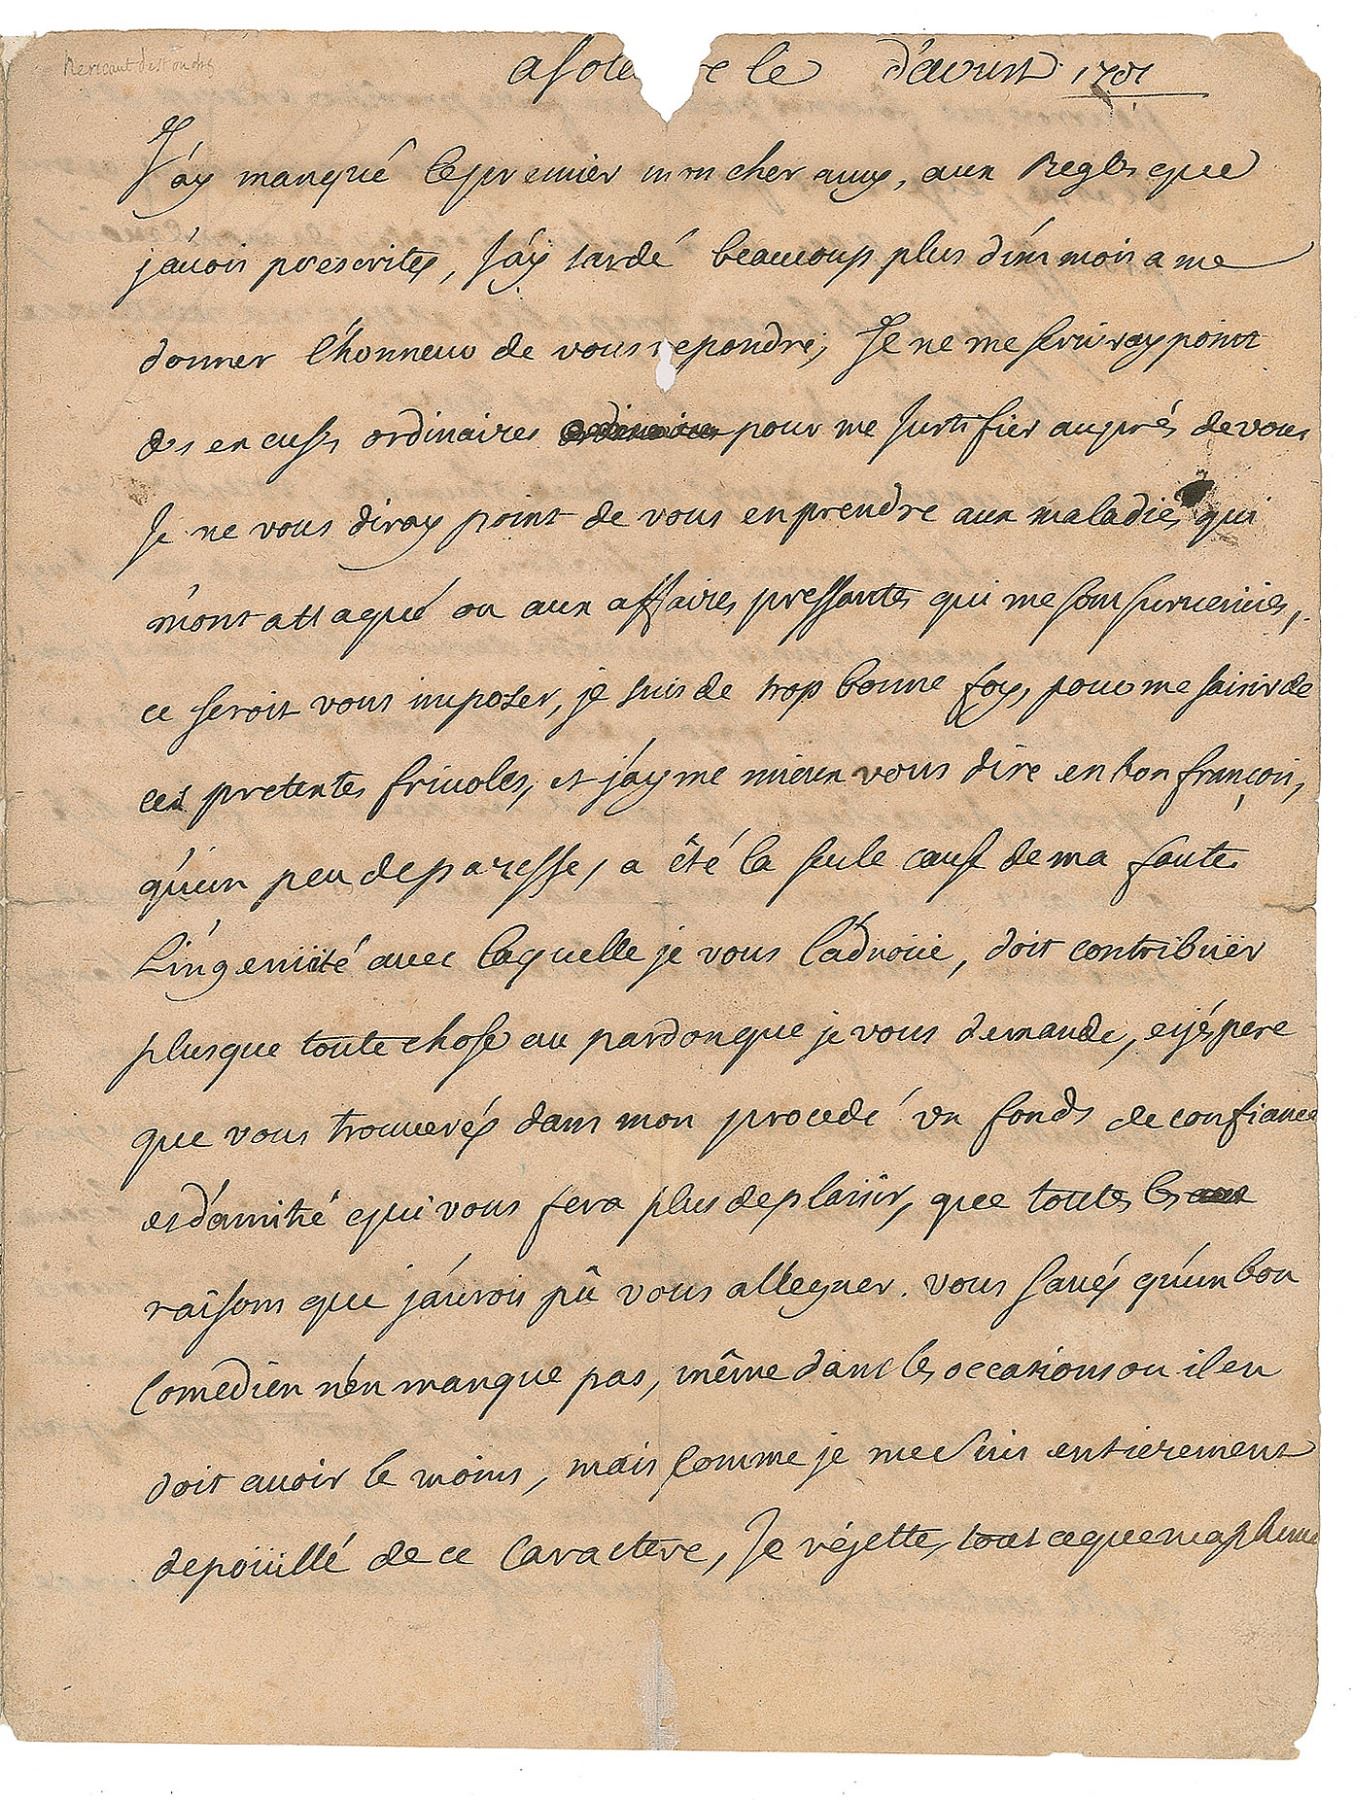 Nericaut destouches
a Sole re le d'avril 1701
J'ay manqué le premier mon cher amy, aux Regles que
j'avois prescrites, J'ay tardé beaucoup plus d'un mois a me
donner l'honneur de vous repondre, Je ne me serviray point
des excuses ordinaires ordinaires pour me justifier auprés de vous
Je ne vous diray point de vous en prendre aux maladies qui
m'ont attaqué ou aux affaires pressantes qui me sont survenües,
ce seroit vous imposer, je suis de trop bonne foy, pour me saisir de
ces pretextes frivoles, et j'ayme mieux vous dire en bon françois,
qu'un peu de paresse, a êté la seule cause de ma faute
L'ingenuité avec laquelle je vous l'advoüe, doit contribüer
plusque toute chose au pardon que je vous demande, et j'éspere
que vous trouverés dans mon procedé un fonds de confiance
et d'amitié qui vous fera plus de plaisir, que toutes les
raisons que j'aurois pû vous alleguer. vous savés qu'un bon
Comedien n'en manque pas, même dans les occasions ou il en
doit avoir le moins, mais comme je me suis entierement
depoüillé de ce Caractere, Je réjette tout ce que ma plume